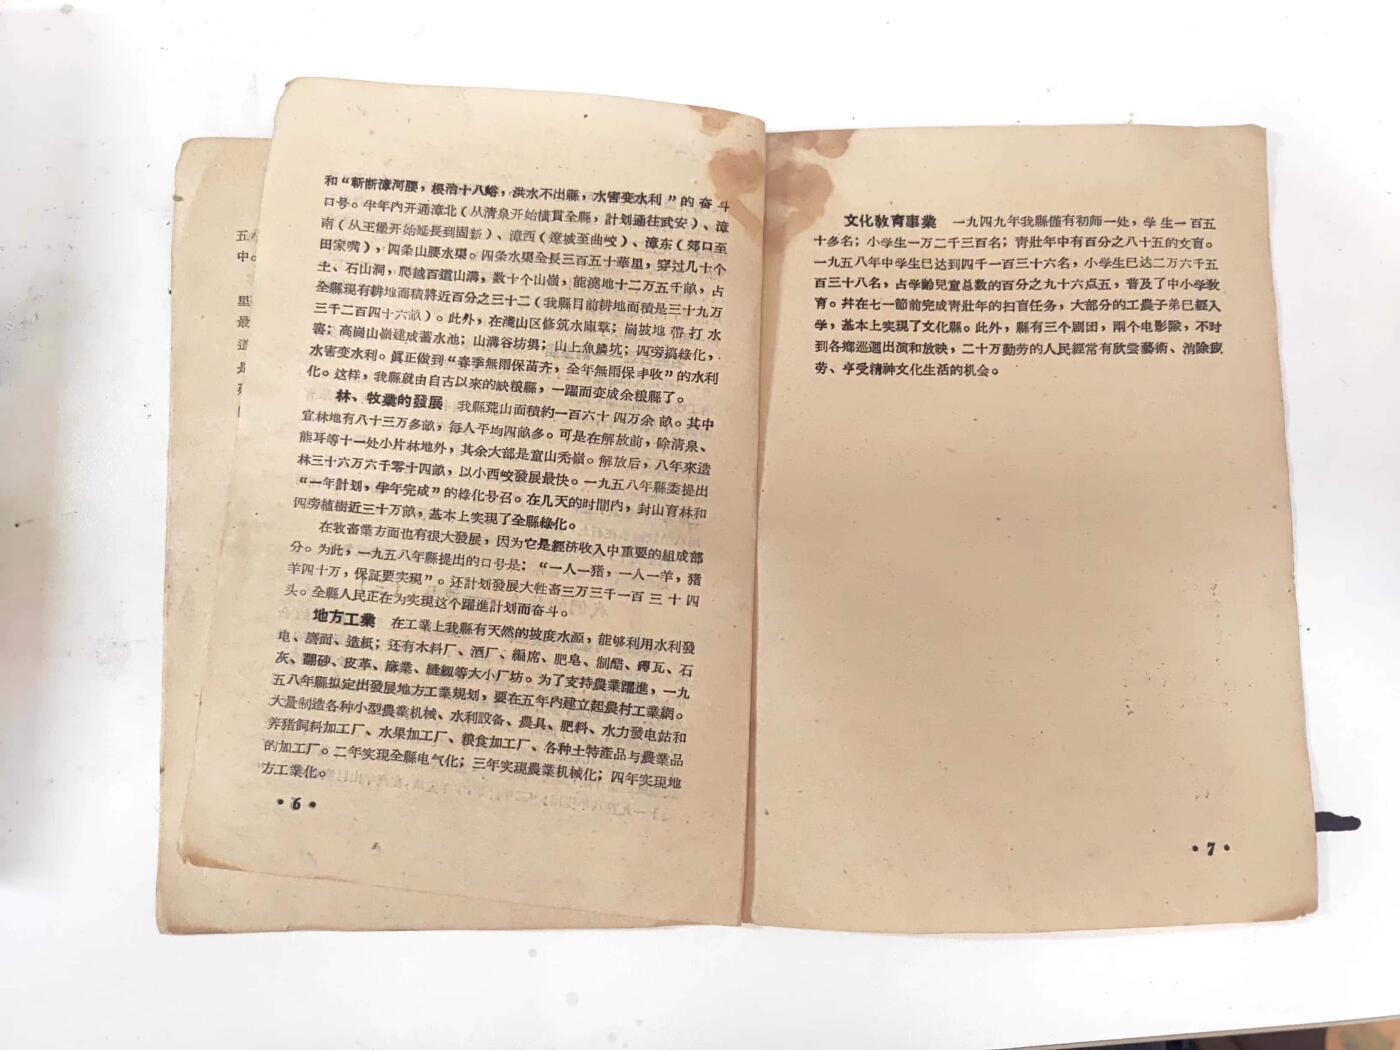 和“斬断漳河腰，根治十八峪，洪水不出縣，水害变水利”的奋斗
口号。半年內开通漳北（从清泉开始橫貫全縣，計划通往武安）、漳
南（从王堡开始延長到固新）、漳西（遼城至曲峧）、漳东（郊口至
田家嘴），四条山腰水渠。四条水渠全長三百五十華里，穿过几十个
土、石山洞，爬越百道山溝，数十个山嶺，能澆地十二万五千畝，占
全縣現有耕地面積將近百分之三十二（我縣目前耕地面積是三十九万
三千二百四十六畝）。此外，在淺山区修筑水庫羣；崗坡地帶打水
窖；高崗山嶺建成蓄水池；山溝谷坊垻；山上魚鱗坑；四旁搞綠化，
水害变水利。眞正做到“春季無雨保苗齐，全年無雨保丰收”的水利
化。这样，我縣就由自古以來的缺粮縣，一躍而变成余粮縣了。
林、牧業的發展　我縣荒山面積約一百六十四万余畝。其中
宜林地有八十三万多畝，每人平均四畝多。可是在解放前，除清泉、
熊耳等十一处小片林地外，其余大部是童山禿嶺。解放后，八年來造
林三十六万六千零十四畝，以小西峧發展最快。一九五八年縣委提出
“一年計划，半年完成”的綠化号召。在几天的时間內，封山育林和
四旁植樹近三十万畝，基本上实現了全縣綠化。
在牧畜業方面也有很大發展，因为它是經济收入中重要的組成部
分。为此，一九五八年縣提出的口号是：“一人一猪，一人一羊，猪
羊四十万，保証要实現”。还計划發展大牲畜三万三千一百三十四
头。全縣人民正在为实現这个躍進計划而奋斗。
地方工業　在工業上我縣有天然的坡度水源，能够利用水利發
电、磨面、造紙；还有木料厂、酒厂、編席、肥皂、制醋、磚瓦、石
灰、翻砂、皮革、麻業、縫紉等大小厂坊。为了支持農業躍進，一九
五八年縣拟定出發展地方工業規划，要在五年內建立起農村工業網。
大量制造各种小型農業机械、水利設备、農具、肥料、水力發电站和
养猪飼料加工厂、水果加工厂、粮食加工厂、各种土特產品与農業品
的加工厂。二年实現全縣电气化；三年实現農業机械化；四年实現地
方工業化。
• 6 •
文化敎育事業　一九四九年我縣僅有初师一处，学生一百五
十多名；小学生一万二千三百名；靑壯年中有百分之八十五的文盲。
一九五八年中学生已达到四千一百三十六名，小学生已达二万六千五
百三十八名，占学齡兒童总数的百分之九十六点五，普及了中小学敎
育。幷在七一節前完成靑壯年的扫盲任务，大部分的工農子弟已經入
学，基本上实現了文化縣。此外，縣有三个剧团，兩个电影隊，不时
到各鄉巡迴出演和放映，二十万勤劳的人民經常有欣尝藝術、消除疲
劳、亨受精神文化生活的机会。
• 7 •